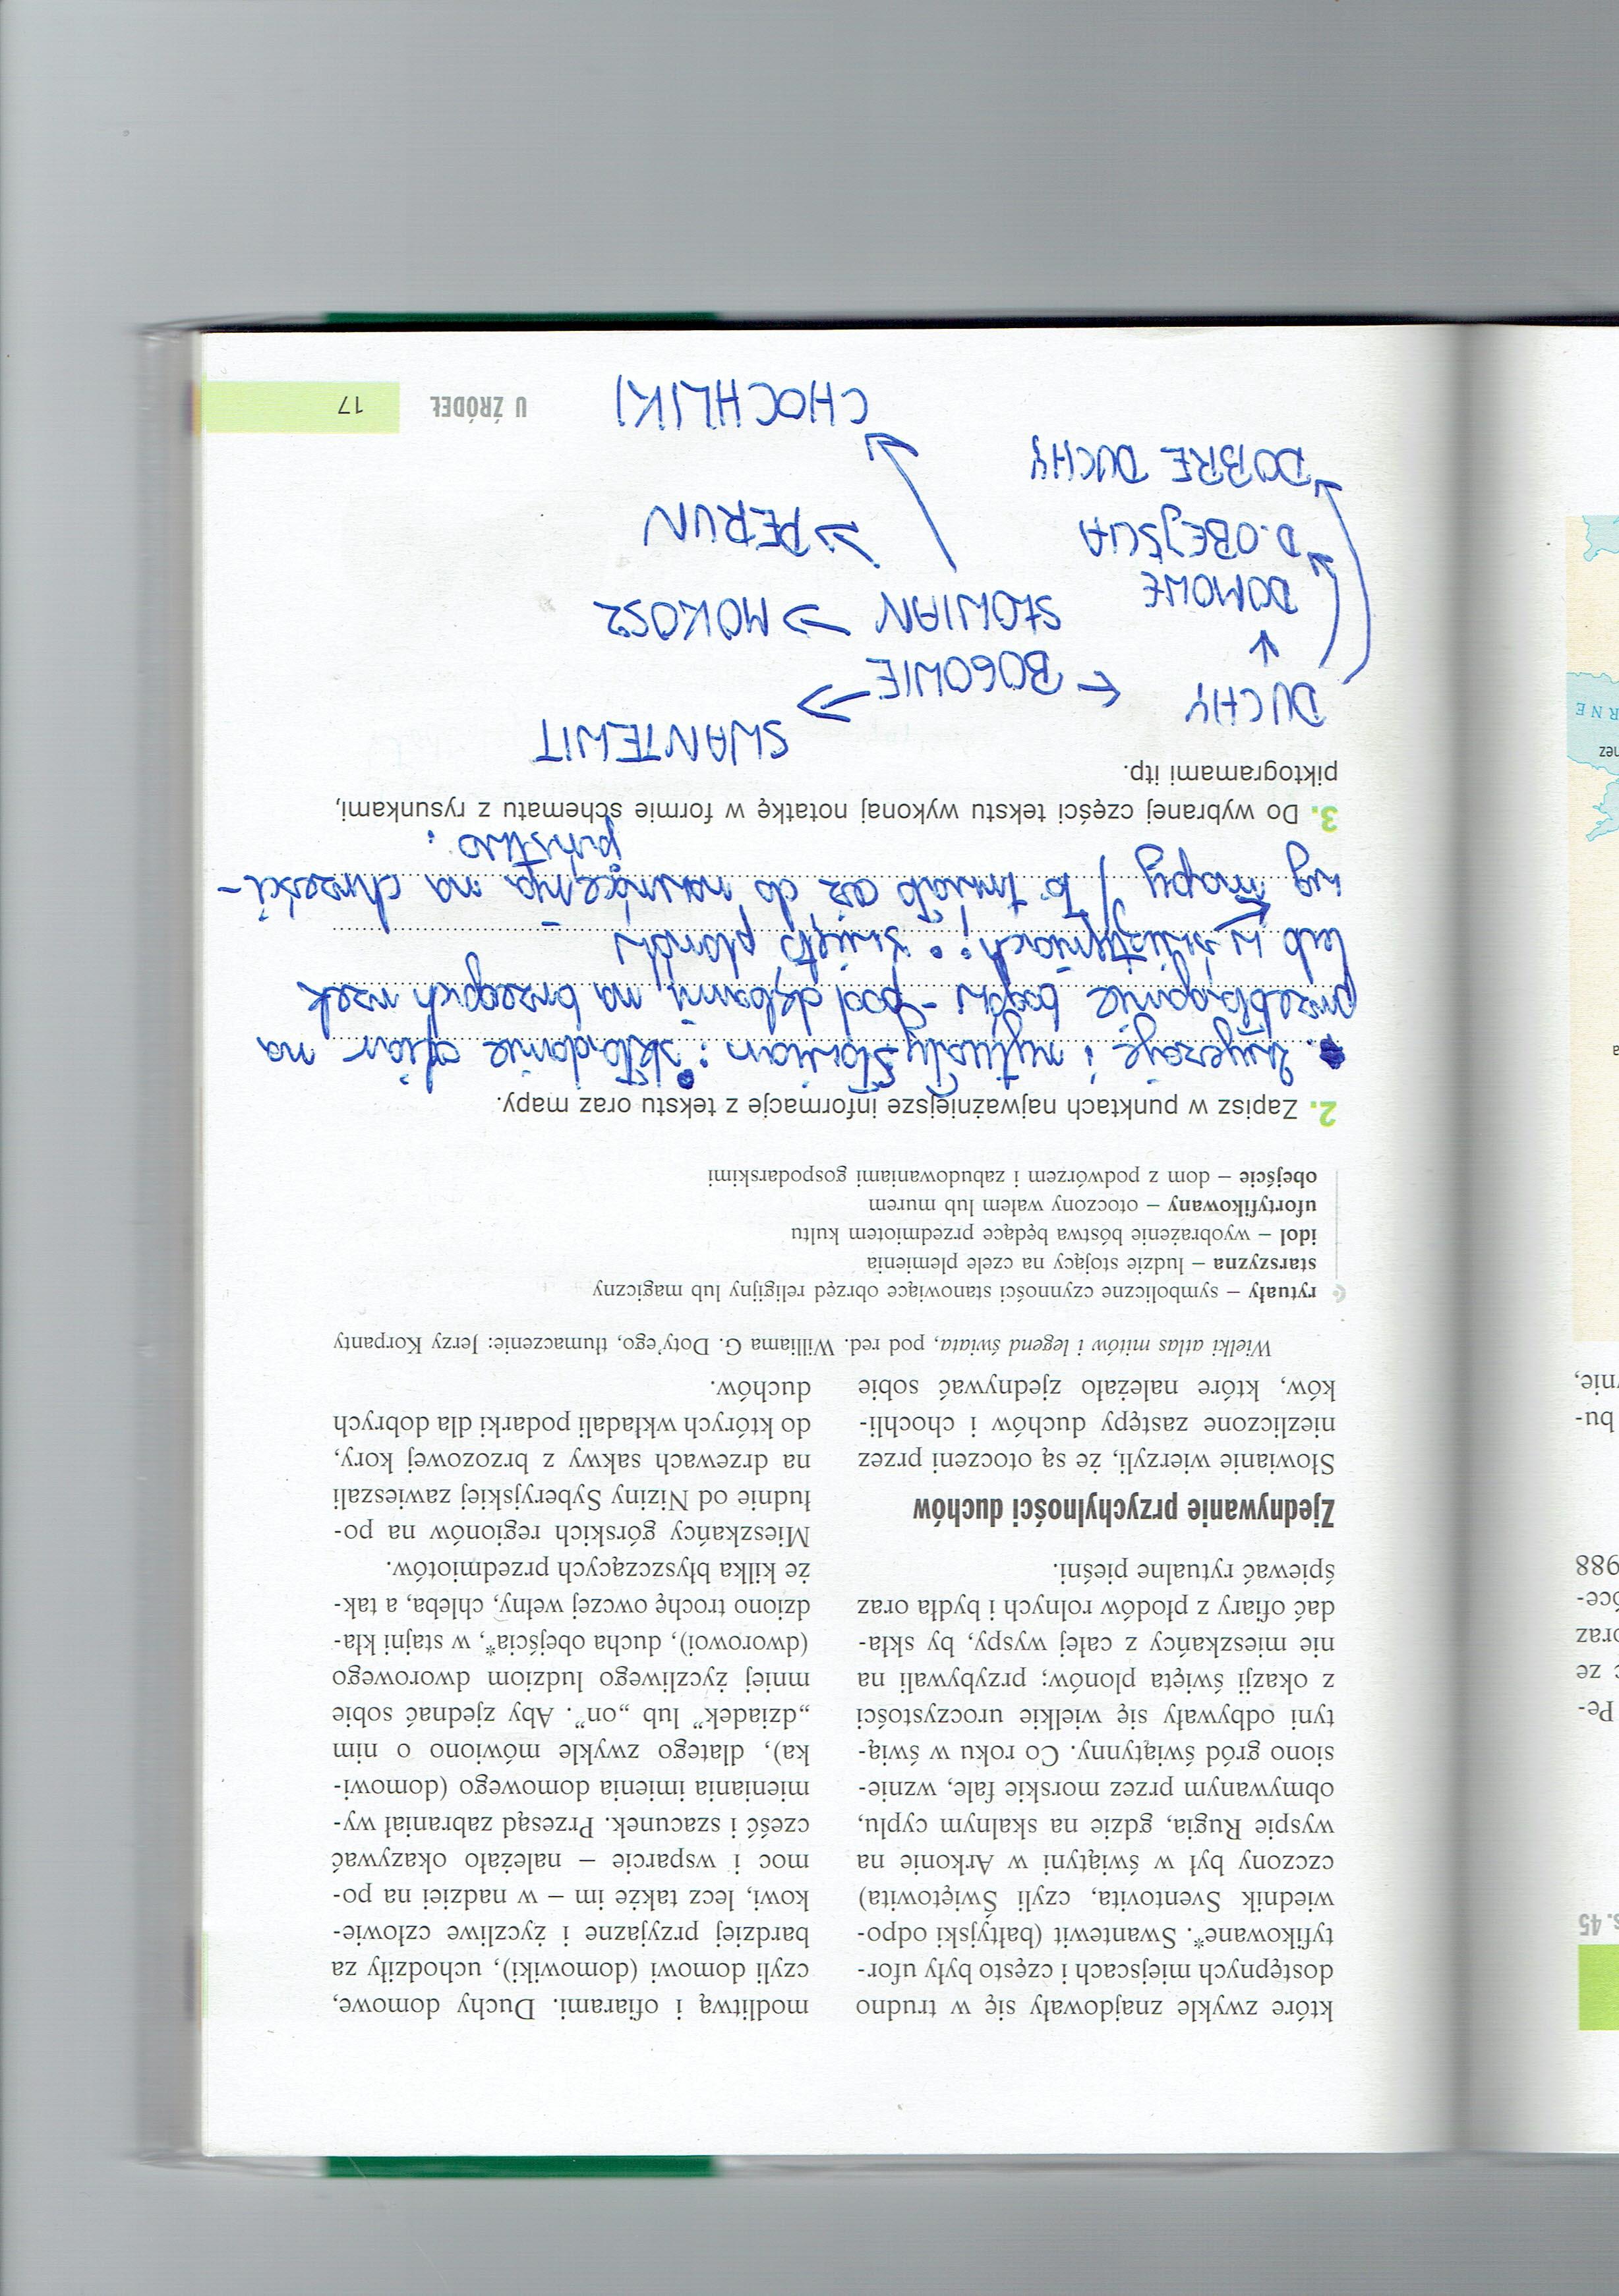 które zwykle znajdowały się w trudno
dostępnych miejscach i często były ufor-
tyfikowane*. Swantewit (bałtyjski odpo-
wiednik Sventovita, czyli Świętowita)
czczony był w świątyni w Arkonie na
wyspie Rugia, gdzie na skalnym cyplu,
obmywanym przez morskie fale, wznie-
siono gród świątynny. Co roku w świą-
tyni odbywały się wielkie uroczystości
z okazji święta plonów; przybywali na
nie mieszkańcy z całej wyspy, by skła-
dać ofiary z płodów rolnych i bydła oraz
śpiewać rytualne pieśni.
Zjednywanie przychylności duchów
Słowianie wierzyli, że są otoczeni przez
niezliczone zastępy duchów i chochli-
ków, które należało zjednywać sobie
modlitwą i ofiarami. Duchy domowe,
czyli domowi (domowiki), uchodziły za
bardziej przyjazne i życzliwe człowie-
kowi, lecz także im – w nadziei na po-
moc i wsparcie – należało okazywać
cześć i szacunek. Przesąd zabraniał wy-
mieniania imienia domowego (domowi-
ka), dlatego zwykle mówiono o nim
„dziadek” lub „on”. Aby zjednać sobie
mniej życzliwego ludziom dworowego
(dworowoi), ducha obejścia*, w stajni kła-
dziono trochę owczej wełny, chleba, a tak-
że kilka błyszczących przedmiotów.
Mieszkańcy górskich regionów na po-
łudnie od Niziny Syberyjskiej zawieszali
na drzewach sakwy z brzozowej kory,
do których wkładali podarki dla dobrych
duchów.
Wielki atlas mitów i legend świata, pod red. Williama G. Doty’ego, tłumaczenie: Jerzy Korpanty
rytuały – symboliczne czynności stanowiące obrzęd religijny lub magiczny
starszyzna – ludzie stojący na czele plemienia
idol – wyobrażenie bóstwa będące przedmiotem kultu
ufortyfikowany – otoczony wałem lub murem
obejście – dom z podwórzem i zabudowaniami gospodarskimi
2. Zapisz w punktach najważniejsze informacje z tekstu oraz mapy.
• Zwyczaje i rytuały Słowian: • składanie ofiar na
przebłaganie bogów - pod dębami, na brzegach rzek
lub w świątyniach; • święto plonów
wg mapy / to trwało aż do nawrócenia na chrześci-
jaństwo.
3. Do wybranej części tekstu wykonaj notatkę w formie schematu z rysunkami,
piktogramami itp.
DUCHY ← BOGOWIE → SWANTEWIT
SŁOWIAN → MOKOSZ
→ PERUN
DOMOWE
D. OBEJŚCIA
DOBRE DUCHY
CHOCHLIKI
U ŹRÓDEŁ
17
s. 45
Pe-
ze
oraz
988
bu-
RNE